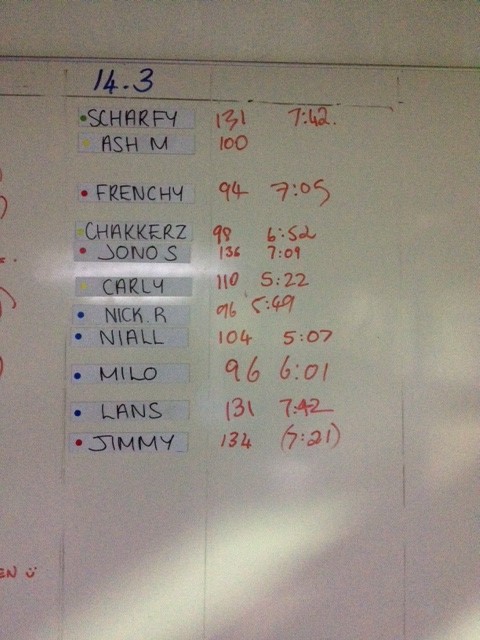 14.3
SCHARFY 131 7:42.
ASH M 100
FRENCHY 94 7:05
CHAKKERZ 98 6:52
JONO S 136 7:09
CARLY 110 5:22
NICK.R 96 5:49
NIALL 104 5:07
MILO 96 6:01
LANS 131 7:42
JIMMY 134 (7:21)
EN ü